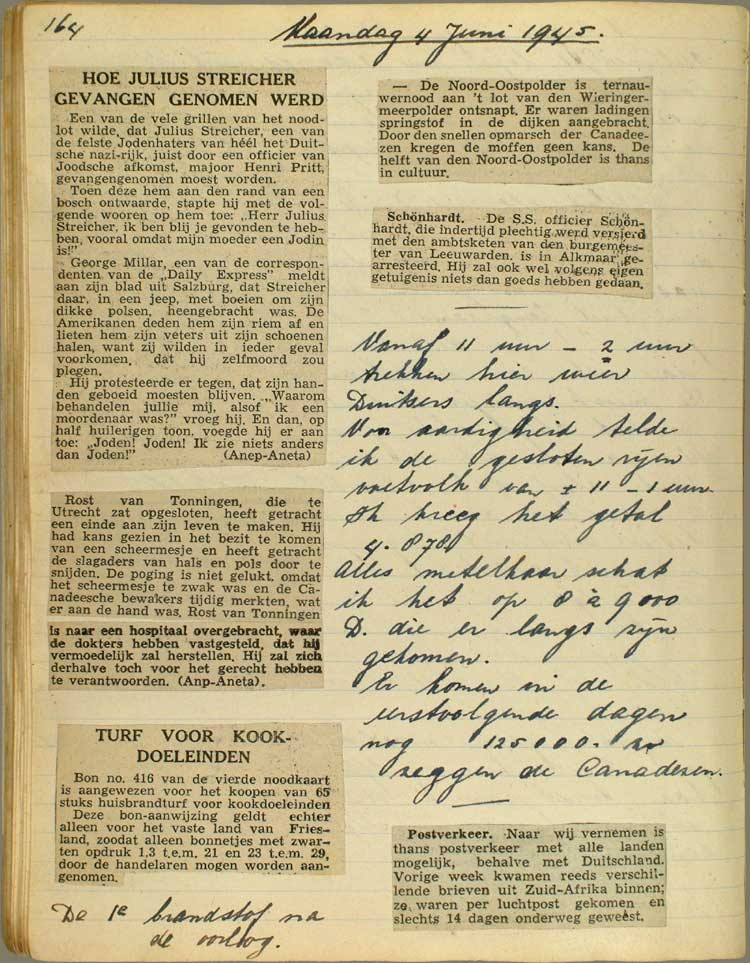 164
Maandag 4 Juni 1945.
HOE JULIUS STREICHER
GEVANGEN GENOMEN WERD
Een van de vele grillen van het nood-
lot wilde, dat Julius Streicher, een van
de felste Jodenhaters van héél het Duit-
sche nazi-rijk, juist door een officier van
Joodsche afkomst, majoor Henri Pritt,
gevangengenomen moest worden.
Toen deze hem aan den rand van een
bosch ontwaarde, stapte hij met de vol-
gende wooren op hem toe: „Herr Julius
Streicher, ik ben blij je gevonden te heb-
ben, vooral omdat mijn moeder een Jodin
is!"
George Millar, een van de correspon-
denten van de „Daily Express" meldt
aan zijn blad uit Salzburg, dat Streicher
daar, in een jeep, met boeien om zijn
dikke polsen, heengebracht was. De
Amerikanen deden hem zijn riem af en
lieten hem zijn veters uit zijn schoenen
halen, want zij wilden in ieder geval
voorkomen, dat hij zelfmoord zou
plegen.
Hij protesteerde er tegen, dat zijn han-
den geboeid moesten blijven. „Waarom
behandelen jullie mij, alsof ik een
moordenaar was?" vroeg hij. En dan, op
half huilerigen toon, voegde hij er aan
toe: „Joden! Joden! Ik zie niets anders
dan Joden!" (Anep-Aneta)
Rost van Tonningen, die te
Utrecht zat opgesloten, heeft getracht
een einde aan zijn leven te maken. Hij
had kans gezien in het bezit te komen
van een scheermesje en heeft getracht
de slagaders van hals en pols door te
snijden. De poging is niet gelukt, omdat
het scheermesje te zwak was en de Ca-
nadeesche bewakers tijdig merkten, wat
er aan de hand was. Rost van Tonningen
is naar een hospitaal overgebracht, waar
de dokters hebben vastgesteld, dat hij
vermoedelijk zal herstellen. Hij zal zich
derhalve toch voor het gerecht hebben
te verantwoorden. (Anp-Aneta).
TURF VOOR KOOK-
DOELEINDEN
Bon no. 416 van de vierde noodkaart
is aangewezen voor het koopen van 65
stuks huisbrandturf voor kookdoeleinden
Deze bon-aanwijzing geldt echter
alleen voor het vaste land van Fries-
land, zoodat alleen bonnetjes met zwar-
ten opdruk 1,3 t.e.m. 21 en 23 t.e.m. 29,
door de handelaren mogen worden aan-
genomen.
De 1e brandstof na
de oorlog.
— De Noord-Oostpolder is ternau-
wernood aan 't lot van den Wieringer-
meerpolder ontsnapt. Er waren ladingen
springstof in de dijken aangebracht.
Door den snellen opmarsch der Canadee-
zen kregen de moffen geen kans. De
helft van den Noord-Oostpolder is thans
in cultuur.
Schönhardt. De S.S. officier Schön-
hardt, die indertijd plechtig werd versierd
met den ambtsketen van den burgemees-
ter van Leeuwarden, is in Alkmaar ge-
arresteerd. Hij zal ook wel volgens eigen
getuigenis niets dan goeds hebben gedaan.
Vanaf 11 uur – 2 uur
trekken hier weer
Duitsers langs.
Voor aardigheid telde
ik de gesloten rijen
voetvolk van ± 11 – 1 uur.
Ik kreeg het getal
4.878.
Alles metelkaar schat
ik het op 8 à 9000
D. die er langs zijn
gekomen.
Er komen in de
eerstvolgende dagen
nog 125000. zo
zeggen de Canadezen.
Postverkeer. Naar wij vernemen is
thans postverkeer met alle landen
mogelijk, behalve met Duitschland.
Vorige week kwamen reeds verschil-
lende brieven uit Zuid-Afrika binnen;
ze waren per luchtpost gekomen en
slechts 14 dagen onderweg geweest.